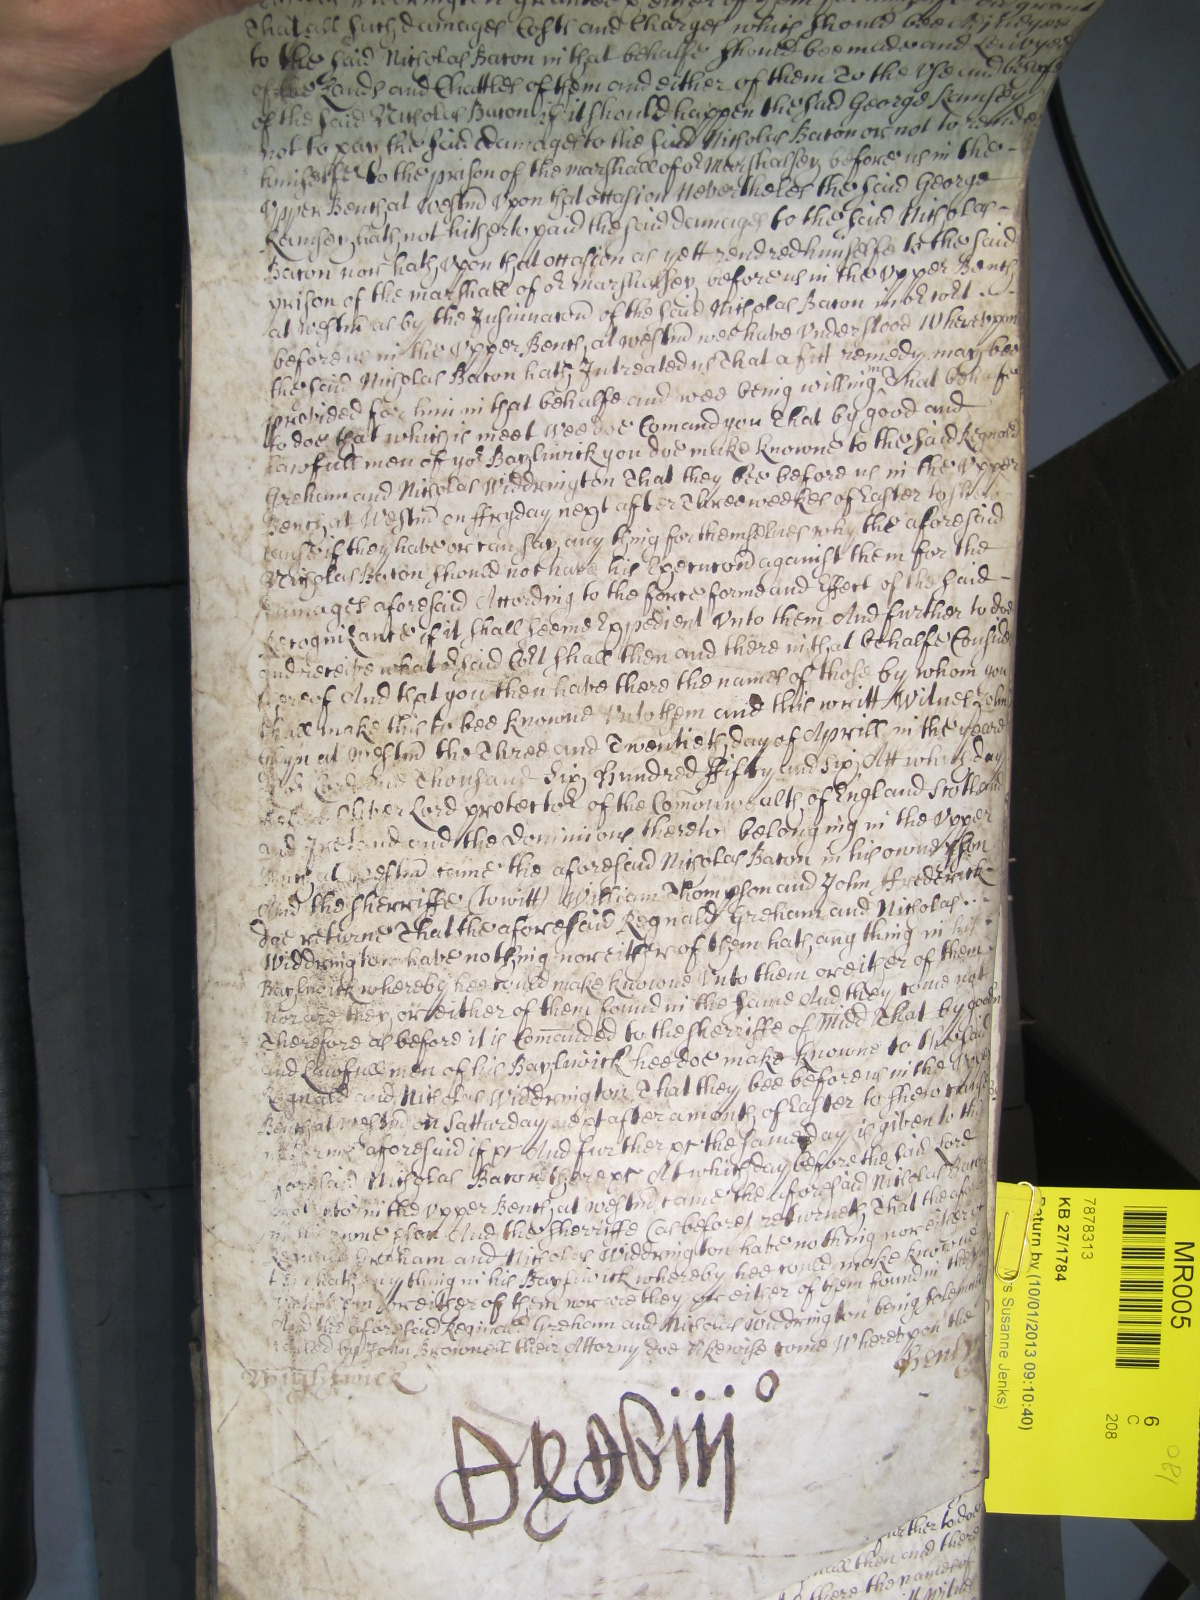 That all such damages Costs and Charges which should bee Adjudged
to the said Nicholas Bacon in that behalfe should bee made and Leavyed
of the Lands and Chattles of them and either of them To the Use and behoofe
of the said Nicholas Bacon if it should happen the said George Ramsey
not to pay the said damages to the said Nicholas Bacon or not to render
himselfe to the prison of the marshall of or Marshalsey before us in the
Upper Bench at Westm̄ Upon that occasion Neverthelesse the said George
Ramsey hath not hitherto paid the said damages to the said Nicholas
Bacon nor hath Upon that occasion as yett rendred himselfe to the said
prison of the marshall of or marshalsey before us in the Upper Bench
at Westm̄ as by the Insinuacōn of the said Nicholas Bacon in or Cort
before us in the Upper Bench at westm̄ wee have Understood Whereupon
the said Nicholas Bacon hath Intreated us That a fitt remedy may bee
provided for him in that behalfe and wee being willing in That behalfe
to doe that which is meet Wee doe Comand you That by good and
Lawfull men of yor Bayliwick you doe make Knowne to the said Reginald
Greham and Nicholas Widdrington That they bee before us in the Upper
Bench at Westm̄ on ffryday next after Three weekes of Easter to shew
cause if they have or can say any thing for themselves why the aforesaid
Nicholas Bacon should not have his Execucōn against them for the
damages aforesaid According to the force forme and Effect of the said
Recognizance if it shall seeme Expedient Unto them And further to doe
and receive what or said Cort shall then and there in that behalfe Consider
thereof And that you then have there the names of those by whom you
shall make this to bee knowne Unto them and this writt Witnes John
Glyn at Westm̄ the Three and Twentieth day of Aprill in the yeare
Lord one Thousand Six Hundred ffifty and six Att which day
Oliver Lord protector of the Com̄onwealth of England Scotland
and Ireland and the Dominions thereto belonging in the Upper
Bench at westm̄ came the aforesaid Nicholas Bacon in his owne pson
And the sherriffe (to witt) William Thompson and John ffrederick
doe returne That the aforesaid Reginald Greham and Nicholas
Widdrington have nothing nor either of them hath any thing in his
Bayliwick whereby hee could make knowne Unto them or either of them
nor are they or either of them found in the same And they come not
Therefore as before it is Com̄anded to the sherriffe of Midd That by good
and Lawfull men of his Bayliwick hee doe make knowne to the said
Reginald and Nicholas Widdrington That they bee before us in the Upper
Bench at westm̄ on Satturday next after a month of Easter to shew cause
in forme aforesaid if &c And further &c the same day is given to the
aforesaid Nicholas Bacon there &c At which day before the said Lord
protector in the Upper Bench at westm̄ came the aforesaid Nicholas Bacon
in his owne pson And the sherriffe (as before) returneth That the aforesaid
Reginald Greham and Nicholas Widdrington have nothing nor either of
them hath any thing in his Bayliwick whereby hee could make knowne
Unto them or either of them nor are they or either of them found in the
And the aforesaid Reginald Greham and Nicholas Widdrington being solemnly
called by John Brownell their Attorny doe likewise come Whereupon the
Wightwick
MR005
6
C
208
7878313
KB 27/1784
Return by (10/01/2013 09:10:40)
Susanne Jenks)
further to doe
shall then and there
there the names of